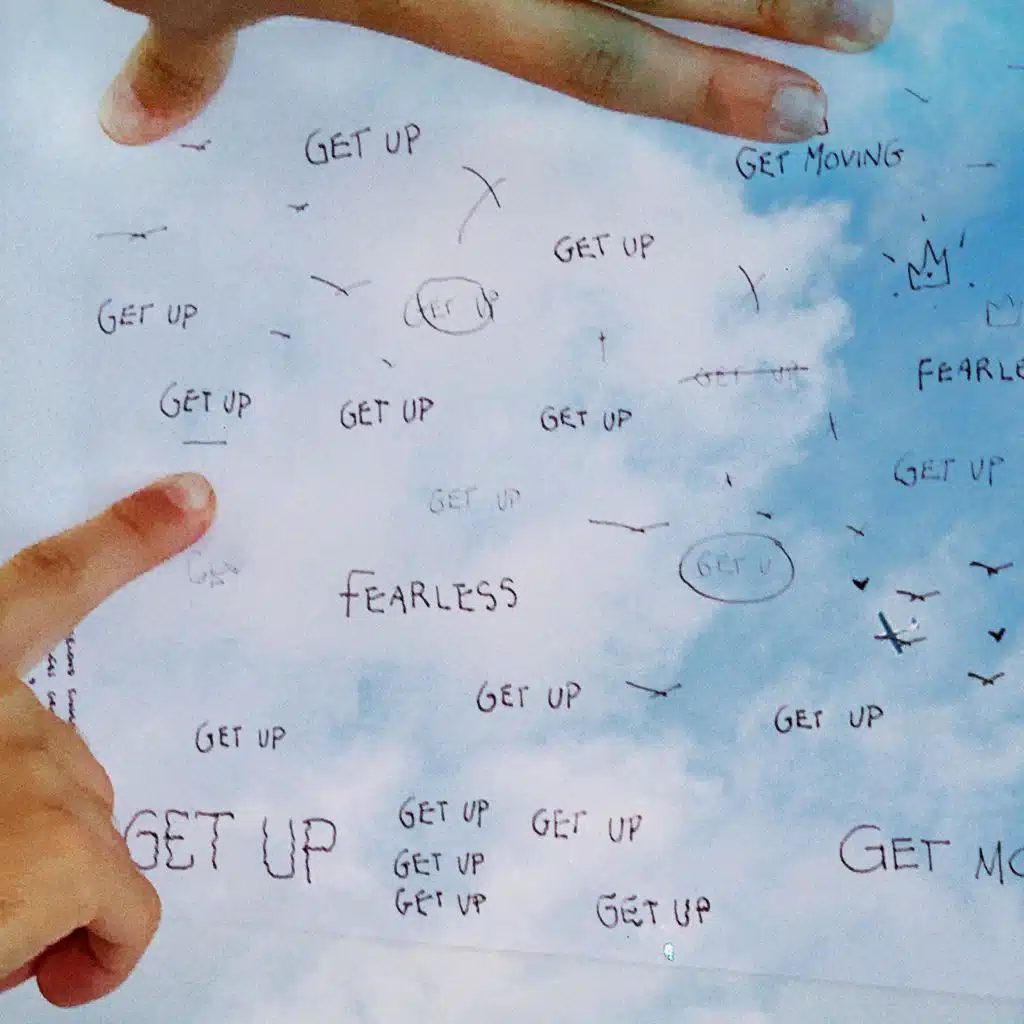 GET UP
GET MOVING
GET UP
GET UP
GET UP
GET UP
FEARLE
GET UP
GET UP
GET UP
GET UP
GET UP
GET U
FEARLESS
GET UP
GET UP
GET UP
GET UP
GET UP
GET UP
GET UP
GET UP
GET MO
GET UP